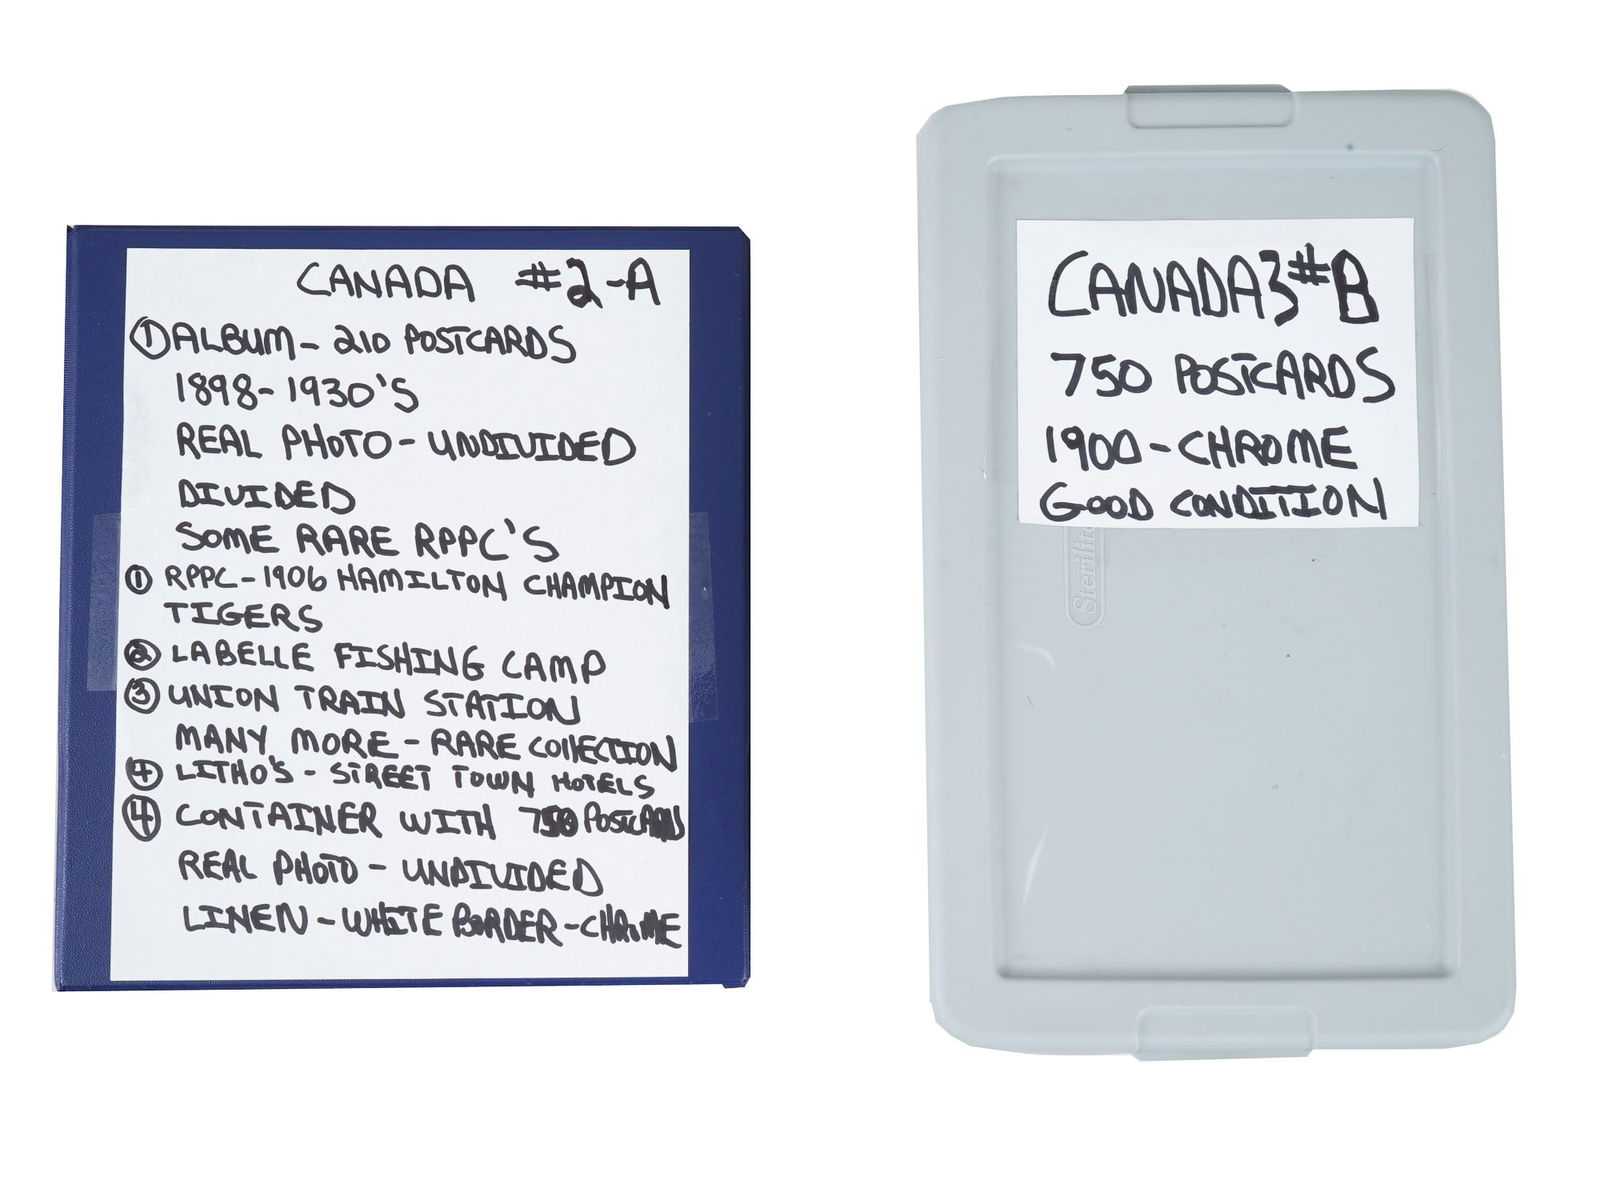 CANADA #2-A
① ALBUM - 210 POSTCARDS
1898-1930'S
REAL PHOTO - UNDIVIDED
DIVIDED
SOME RARE RPPC'S
① RPPC-1906 HAMILTON CHAMPION
TIGERS
② LABELLE FISHING CAMP
③ UNION TRAIN STATION
MANY MORE - RARE COllECTION
④ LITHO'S - STREET TOWN HOTELS
④ CONTAINER WITH 750 POSTCARDS
REAL PHOTO - UNDIVIDED
LINEN - WHITE BORDER - CHROME
CANADA 3#B
750 POSTCARDS
1900 - CHROME
GOOD CONDITION
Sterilite